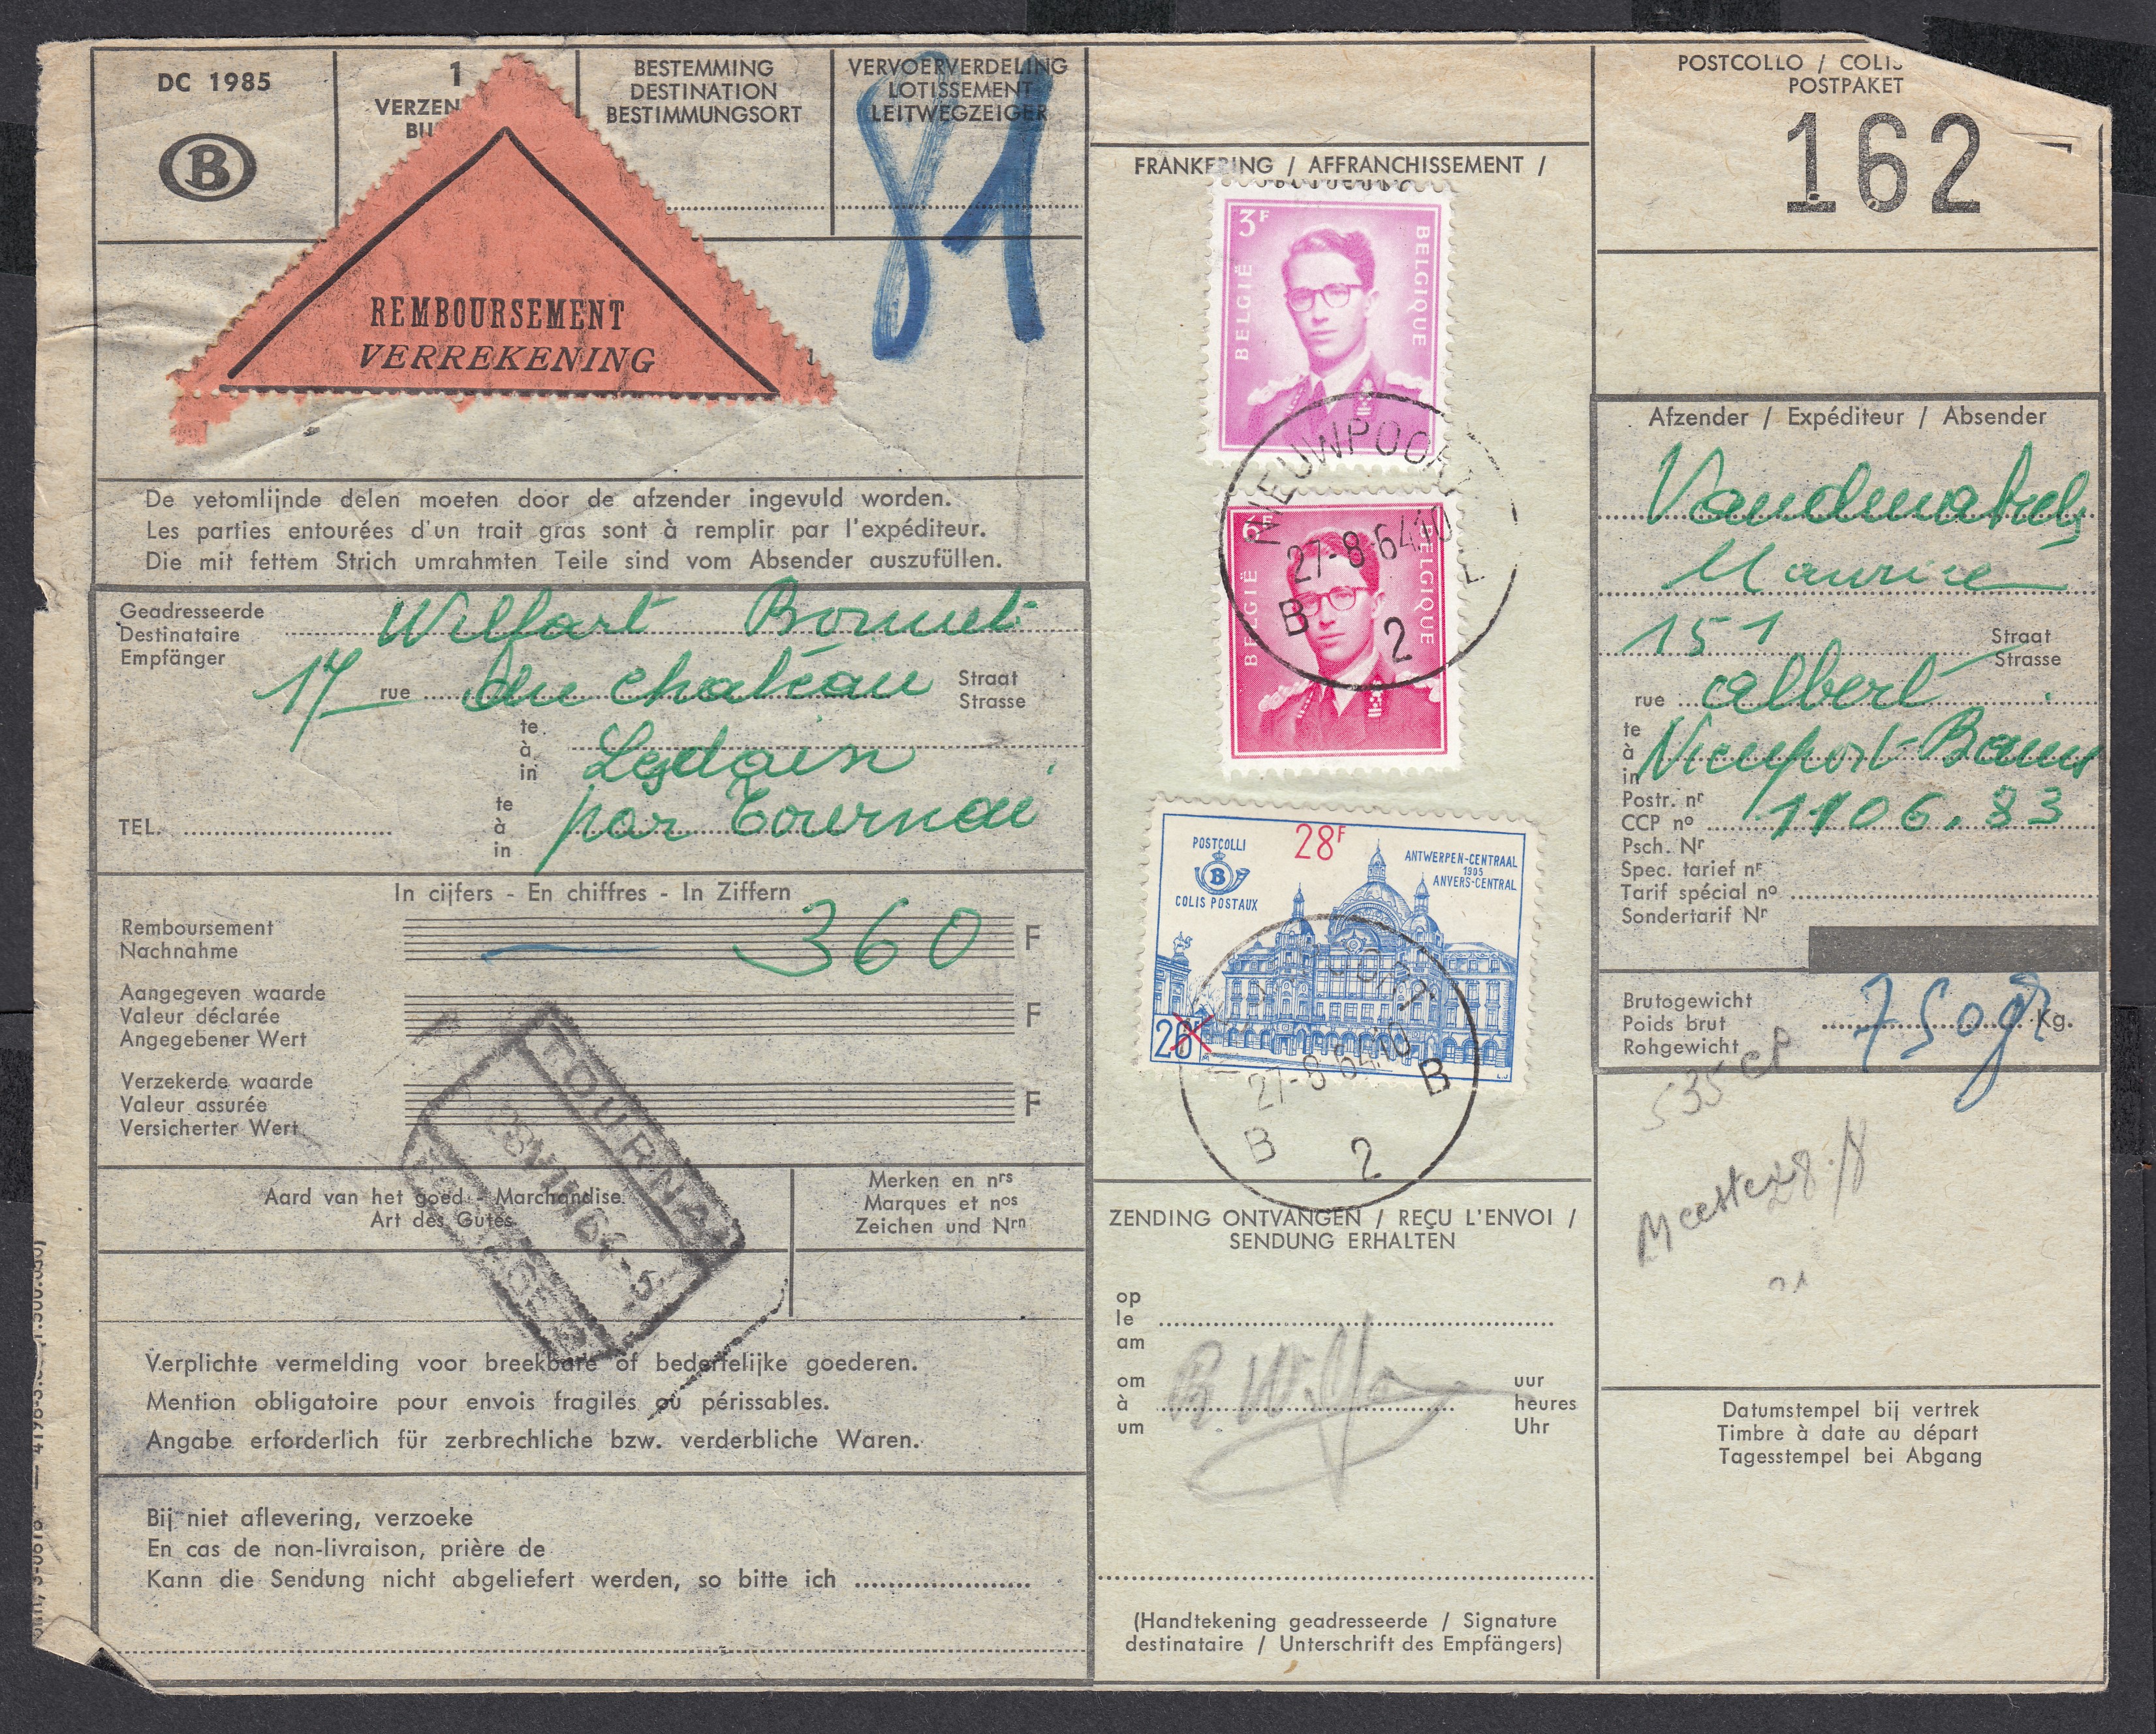 DC 1985
B
1
BESTEMMING
DESTINATION
BESTIMMUNGSORT
VERVOERVERDELING
LOTISSEMENT
LEITWEGZEIGER
81
REMBOURSEMENT
VERREKENING
1
De vetomlijnde delen moeten door de afzender ingevuld worden.
Les parties entourées d'un trait gras sont à remplir par l'expéditeur.
Die mit fettem Strich umrahmten Teile sind vom Absender auszufüllen.
Geadresseerde
Destinataire
Empfänger
Wilfart Bonnet
17 rue du chateau Straat
Strasse
te
à
in
Lesdain
TEL.
te
à
in
par Tournai
In cijfers - En chiffres - In Ziffern
Remboursement
Nachnahme
360 F
Aangegeven waarde
Valeur déclarée
Angegebener Wert
F
Verzekerde waarde
Valeur assurée
Versicherter Wert
F
TOURNAI
Aard van het goed - Marchandise
Art des Gutes
Merken en nrs
Marques et nos
Zeichen und Nrn
Verplichte vermelding voor breekbare of bederfelijke goederen.
Mention obligatoire pour envois fragiles ou périssables.
Angabe erforderlich für zerbrechliche bzw. verderbliche Waren.
Bij niet aflevering, verzoeke
En cas de non-livraison, prière de
Kann die Sendung nicht abgeliefert werden, so bitte ich
FRANKERING / AFFRANCHISSEMENT /
3F
BELGIË
BELGIQUE
NIEUWPOORT
27-8-64.10
B 2
BELGIË
BELGIQUE
POSTCOLLI
B
COLIS POSTAUX
28F
ANTWERPEN-CENTRAAL
1905
ANVERS-CENTRAL
26F
27-8-64.10
B
B 2
ZENDING ONTVANGEN / REÇU L'ENVOI /
SENDUNG ERHALTEN
op
le
am
om
à
um
uur
heures
Uhr
(Handtekening geadresseerde / Signature
destinataire / Unterschrift des Empfängers)
POSTCOLLO /
POSTPAKET
162
Afzender / Expéditeur / Absender
Maurice
151 Straat
Strasse
rue Albert
te
à
in
Nieuport-Bains
Postr. nr
CCP no
Psch. Nr
1106.83
Spec. tarief nr
Tarif spécial no
Sondertarif Nr
Brutogewicht
Poids brut
Rohgewicht
750gr Kg.
535 CP
28.8
Datumstempel bij vertrek
Timbre à date au départ
Tagesstempel bei Abgang